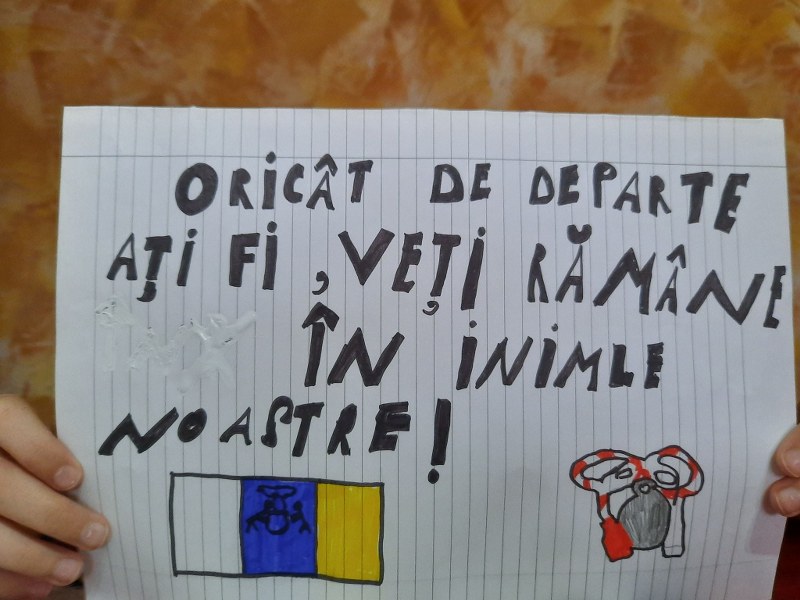 ORICÂT DE DEPARTE
AȚI FI, VEȚI RĂMÂNE
ÎN INIMLE
NOASTRE!